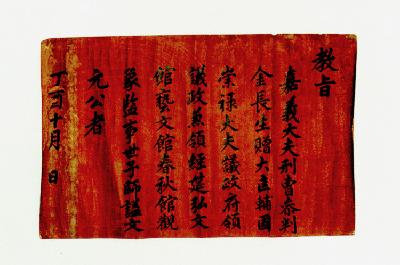 教旨
嘉義大夫刑曹參判
金長生贈大匡輔國
崇祿大夫議政府領
議政兼領經筵弘文
館藝文館春秋館觀
象監事世子師諡文
元公者
丁酉十月　日